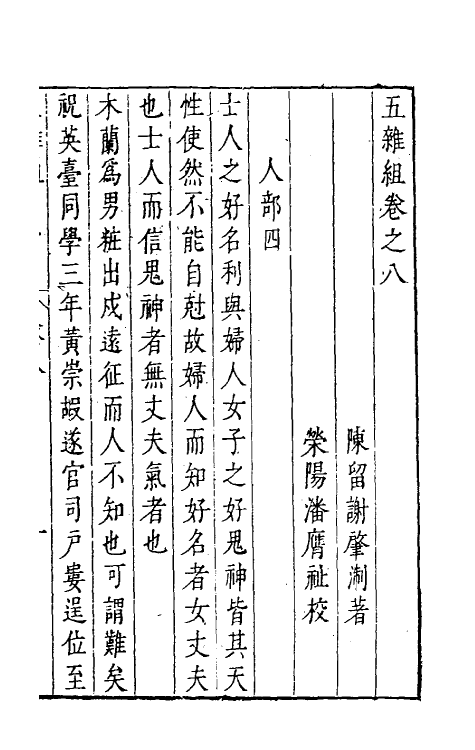 五雜組卷之八
陳留謝肇淛著
滎陽潘膺祉校
人部四
士人之好名利與婦人女子之好鬼神皆其天
性使然不能自尅故婦人而知好名者女丈夫
也士人而信鬼神者無丈夫氣者也
木蘭爲男粧出戍遠征而人不知也可謂難矣
祝英臺同學三年黃崇嘏遂官司戶婁逞位至